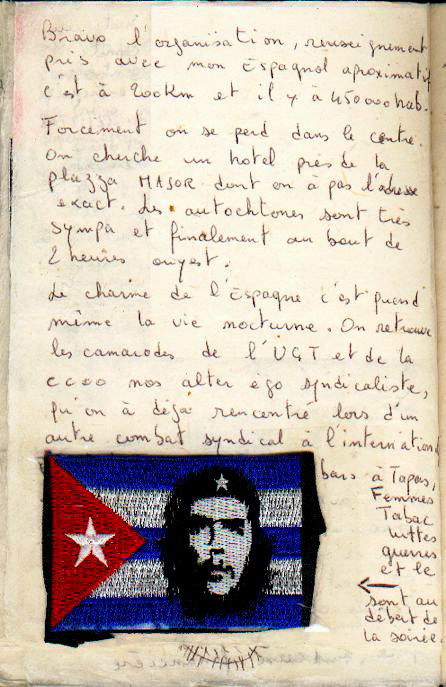 Bravo l'organisation, renseignement
pris avec mon Espagnol aproximatif
c'est à 200km et il y à 450000 hab.
Forcement on se perd dans le centre.
On cherche un hotel près de la
plazza MAJOR dont on à pas l'adresse
exact. Les autochtones sont très
sympa et finalement au bout de
2 heures on y est.
Le charme de l'Espagne c'est quand
même la vie nocturne. On retrouve
les camarades de l'UGT et de la
ccoo nos alter égo syndicaliste,
qu'on à déja rencontré lors d'un
autre combat syndical à l'internation
bars à Tapas,
Femmes
Tabac
luttes
guerres
et le
sont au
debert de
la soirée.